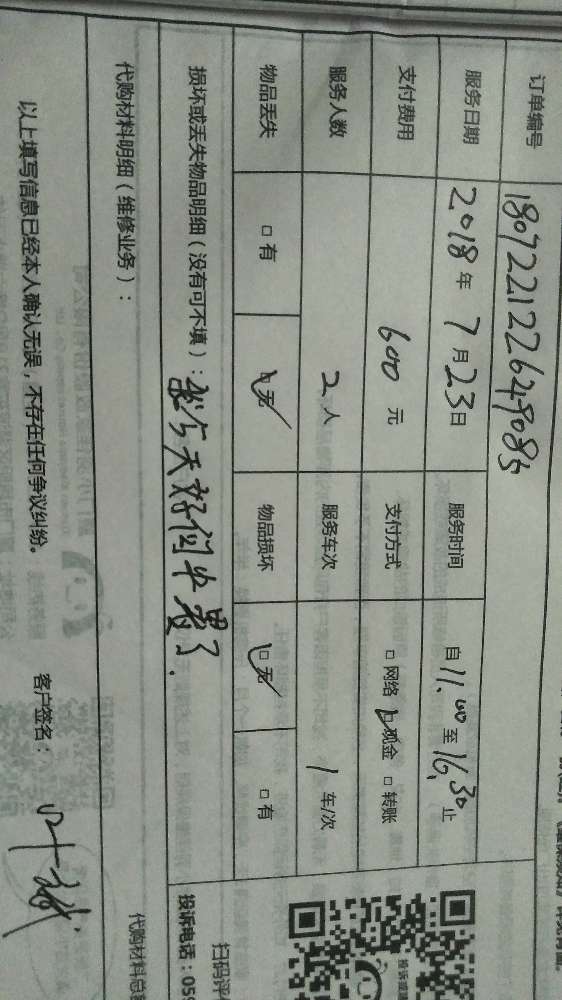 订单编号 180722122649085
服务日期 2018年7月23日 服务时间 自11.00至16.30止
支付费用 600元 支付方式 □网络 ☑现金 □转账
服务人数 2人 服务车次 1车/次
物品丢失 □有 ☑无 物品损坏 ☑无 □有
损坏或丢失物品明细(没有可不填):今天好闷中暑了.
代购材料明细(维修业务):
以上填写信息已经本人确认无误,不存在任何争议纠纷。 客户签名:
扫码评
投诉电话:059
代购材料总